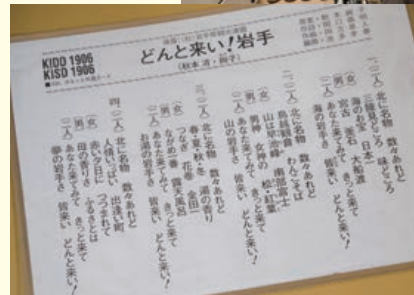 KIDD 1906
KISD 1906
どんと来い!岩手
一、(二人) 北に名物 数々あれど
三陸見どころ 味どころ
海のお宝 日本一
(女) 宮古 釜石 大船渡
(男) あなた来てみて きっと来て
(二人) 海の岩手さ 皆来い どんと来い!
二、(二人) 北に名物 数々あれど
鳥越観音 わんこそば
山は早池峰 南部富士
(女) 男神 女神の 松・紅葉
(男) あなた来てみて きっと来て
(二人) 山の岩手さ 皆来い どんと来い!
三、(二人) 北に名物 数々あれど
春・夏・秋・冬 湯の香り
つなぎ 花巻 金田一
(女) ながめ一番 露天風呂
(男) あなた来てみて きっと来て
(二人) お湯の岩手さ 皆来い どんと来い!
四、(二人) 北に名物 数々あれど
人情いっぱい 出逢い町
赤い夕日に つつまれて
(女) 母の香りさ ふるさとは
(男) あなた来てみて きっと来て
(二人) 夢の岩手さ 皆来い どんと来い!